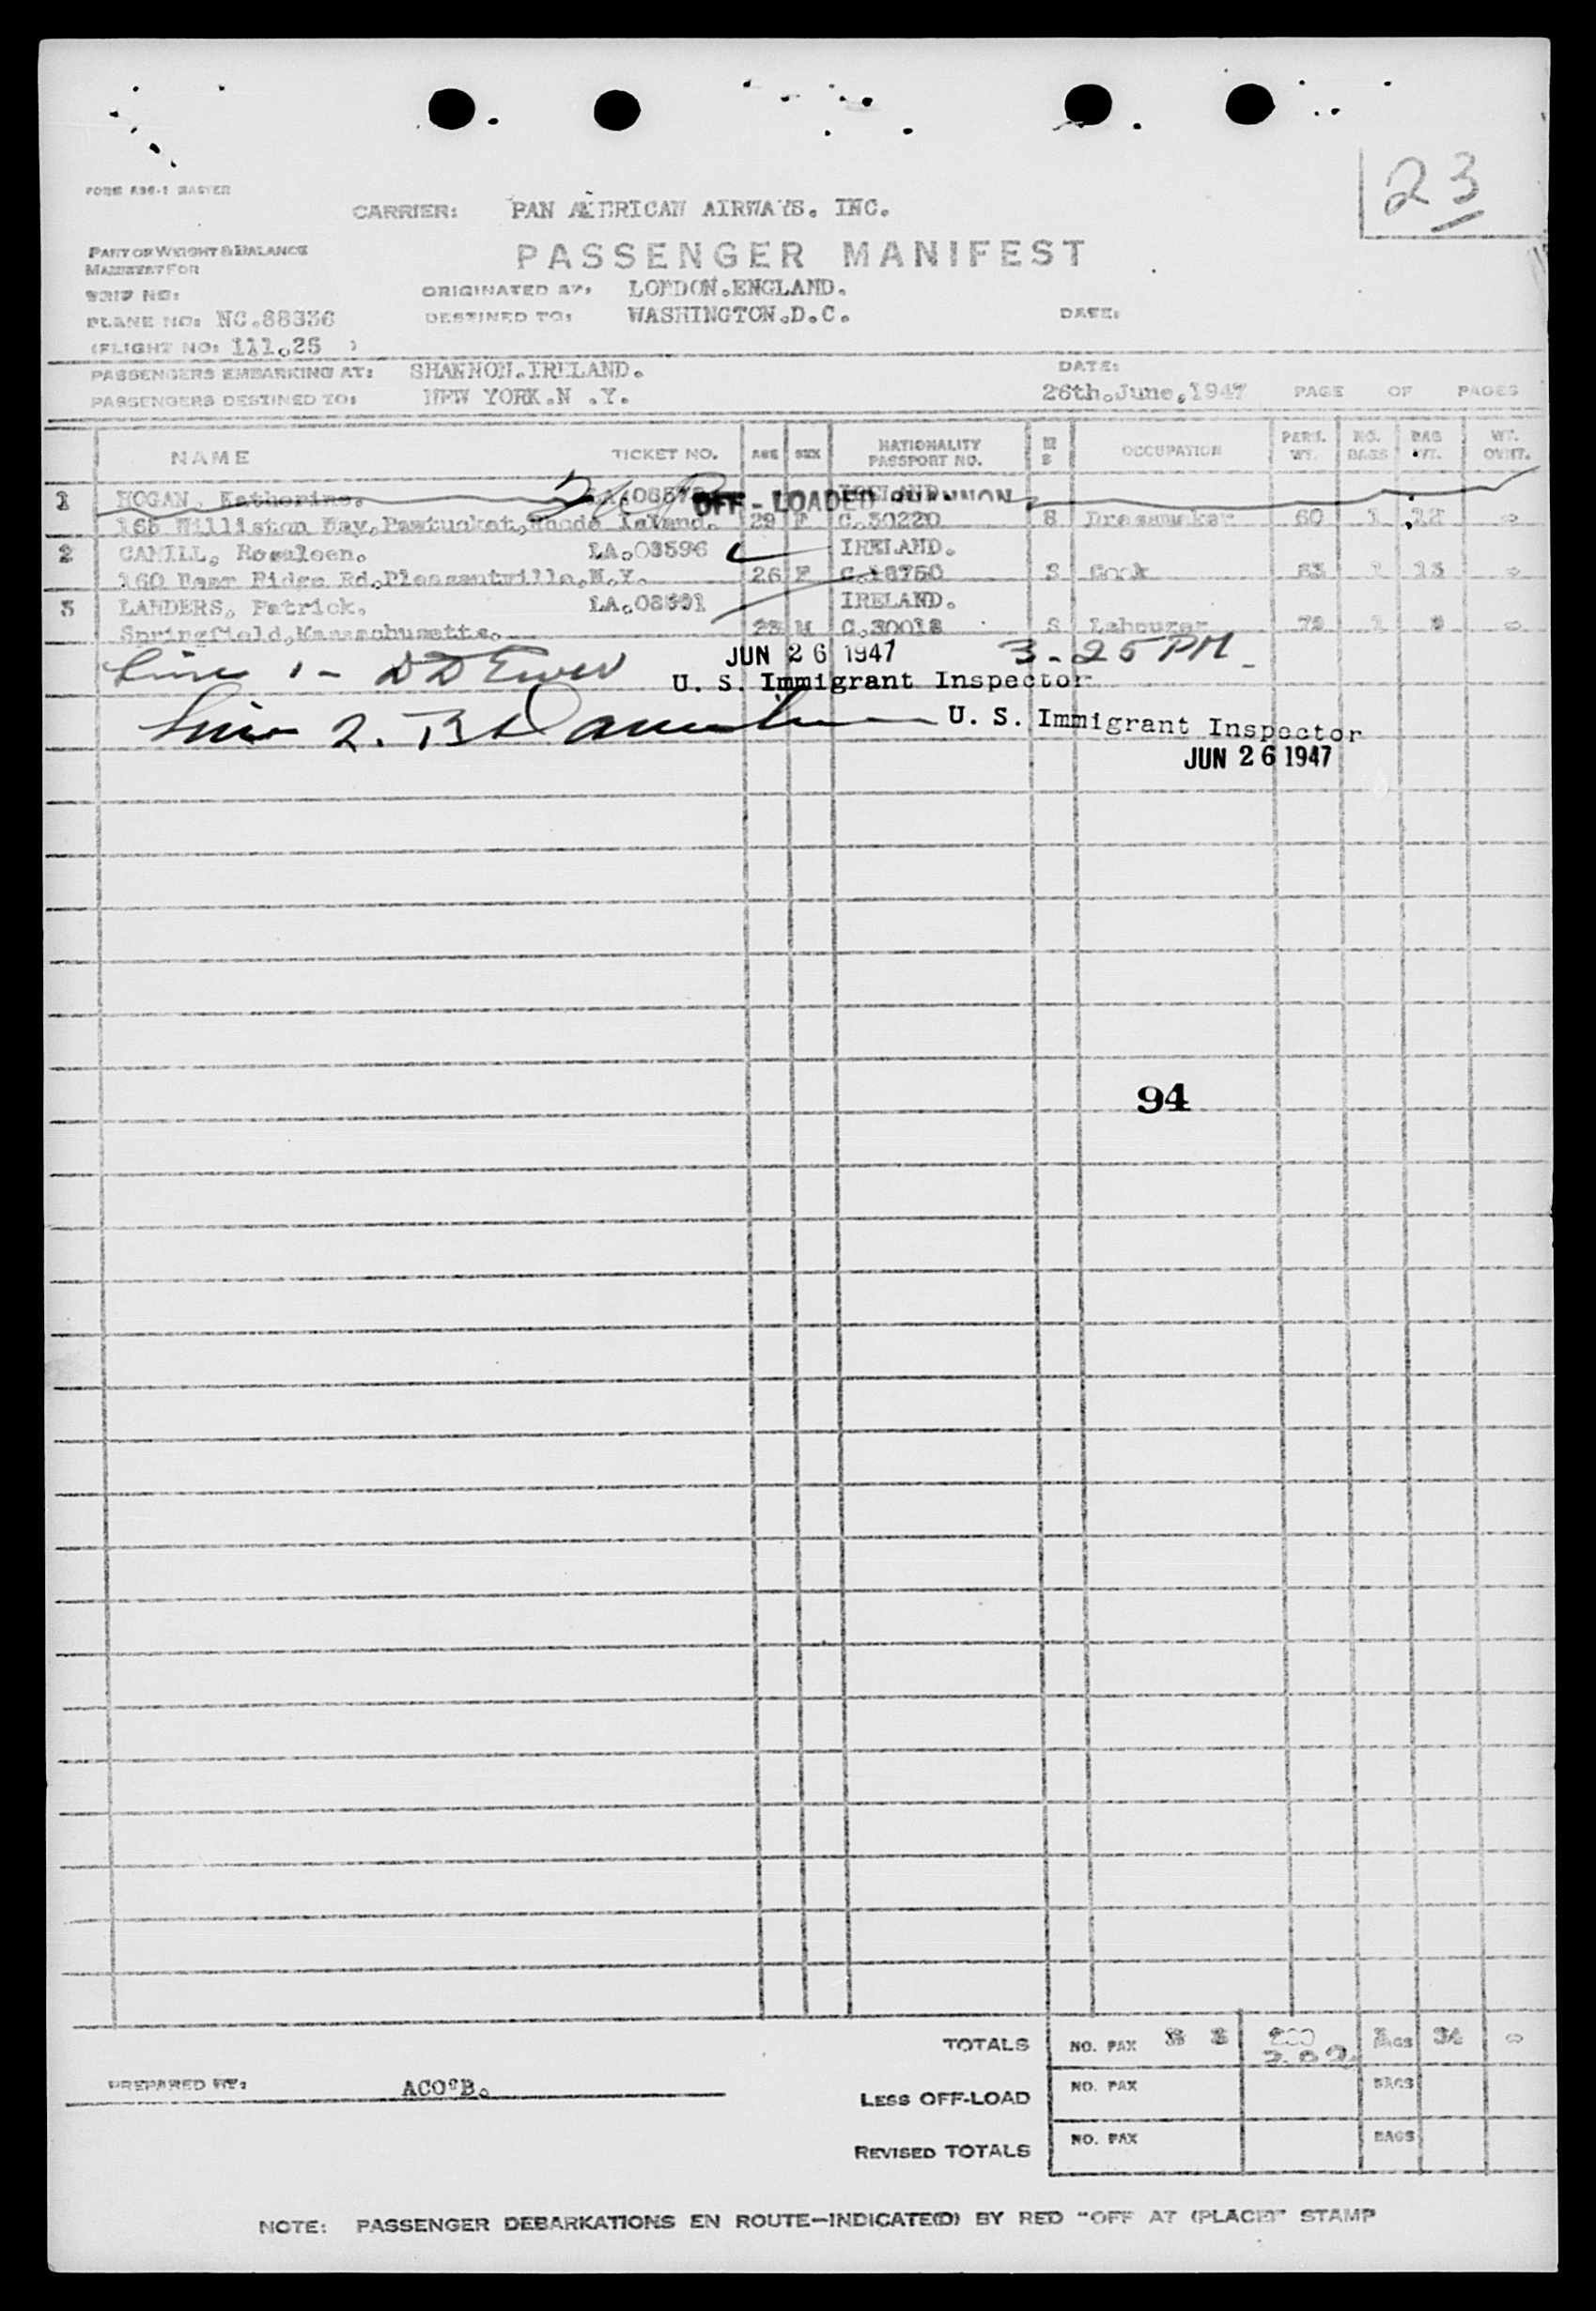 23
FORM 896-1 MASTER
CARRIER: PAN AMERICAN AIRWAYS. INC.
PART OF WEIGHT & BALANCE
MANIFEST FOR
PASSENGER MANIFEST
TRIP NO:
ORIGINATED AT: LONDON.ENGLAND.
PLANE NO: NC.88836
DESTINED TO: WASHINGTON.D.C.
DATE:
(FLIGHT NO: 111.25 )
PASSENGERS EMBARKING AT: SHANNON.IRELAND.
DATE:
PASSENGERS DESTINED TO: NEW YORK.N .Y.
26th.June,1947 PAGE OF PAGES
NAME TICKET NO. AGE SEX NATIONALITY PASSPORT NO. M S OCCUPATION PERS. WT. NO. BAGS BAG WT. WT. OVHT.
1 HOGAN, Katherine. IRELAND.
OFF - LOADED SHANNON
165 Williston Way,Pawtucket,Rhode Island. 29 F C.30220 S Dressmaker 60 1 12 0
2 CAHILL, Rosaleen. LA.08596 IRELAND.
160 Bear Ridge Rd.Pleasantville,N.Y. 26 F C.18750 S Cook 63 1 13 0
3 LANDERS, Patrick. LA.08601 IRELAND.
Springfield,Massachusetts. 23 M C.30018 S Labourer 79 1 9 0
Line 1 - DD
JUN 26 1947
3-25 PM
U. S. Immigrant Inspector
Line 2.
U. S. Immigrant Inspector
JUN 26 1947
94
TOTALS NO. PAX 3 202 BAGS 34 0
PREPARED BY: ACO'B.
LESS OFF-LOAD NO. PAX BAGS
REVISED TOTALS NO. PAX BAGS
NOTE: PASSENGER DEBARKATIONS EN ROUTE—INDICATE(D) BY RED "OFF AT (PLACE)" STAMP